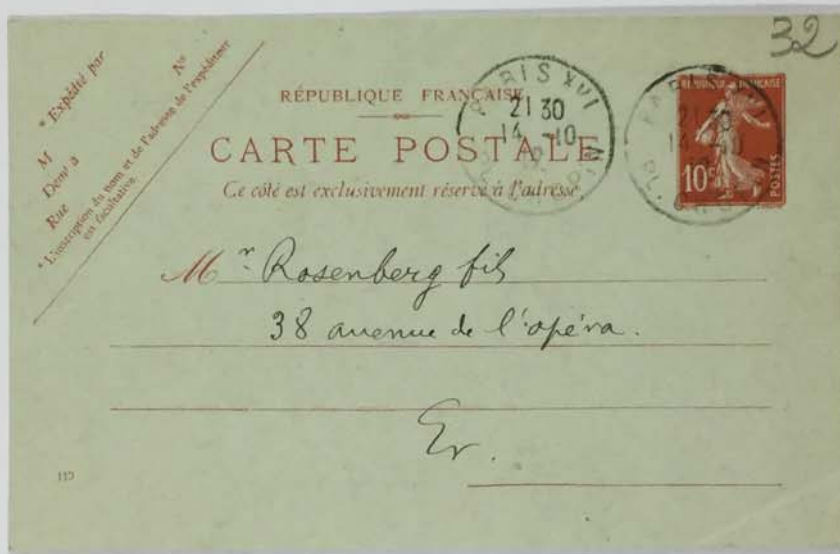 32
* Expédié par
M
Dem^t à
Rue
N°
* L'inscription du nom et de l'adresse de l'expéditeur
est facultative.
RÉPUBLIQUE FRANÇAISE
CARTE POSTALE
Ce côté est exclusivement réservé à l'adresse.
PARIS XVI
21 30
14 -10
PARIS XVI
21 30
14 -10
PL.
RÉPUBLIQUE FRANÇAISE
10c
POSTES
M^r Rosenberg fils
38 avenue de l'opéra.
Ev.
115